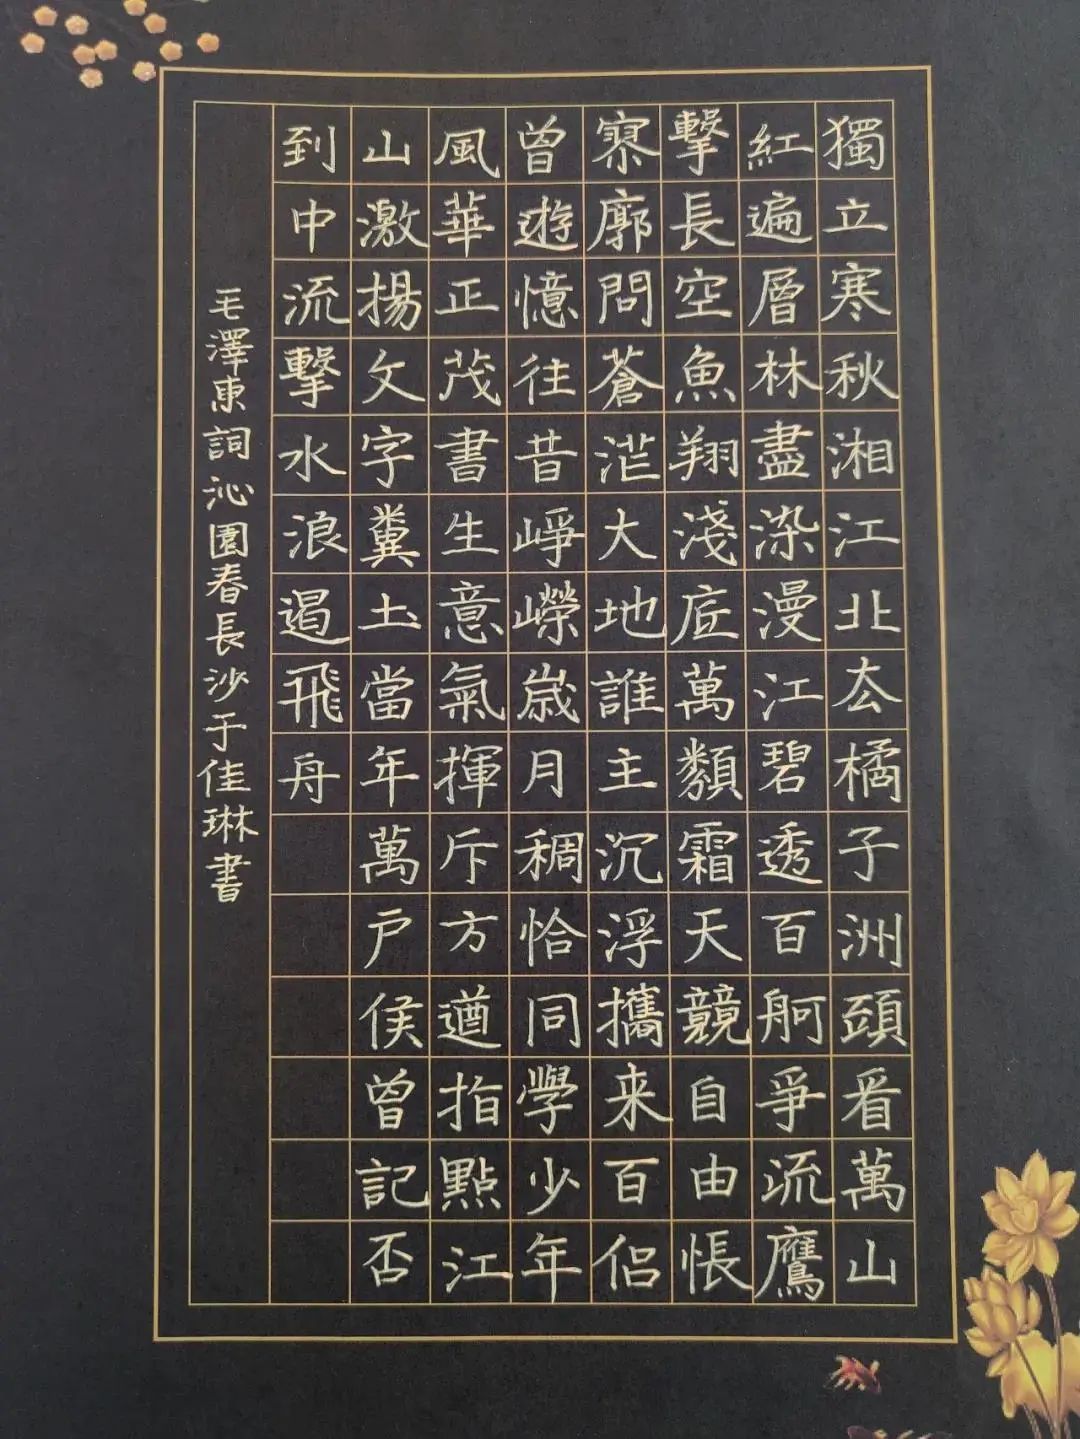 獨立寒秋湘江北厺橘子洲頭看萬山
紅遍層林盡染漫江碧透百舸爭流鷹
擊長空魚翔淺底萬類霜天競自由悵
寥廓問蒼茫大地誰主沉浮攜来百侣
曾遊憶往昔崢嶸崴月稠恰同學少年
風華正茂書生意氣揮斥方遒指點江
山激揚文字糞土當年萬戶侯曾記否
到中流擊水浪遏飛舟
毛澤東詞沁園春長沙于佳琳書